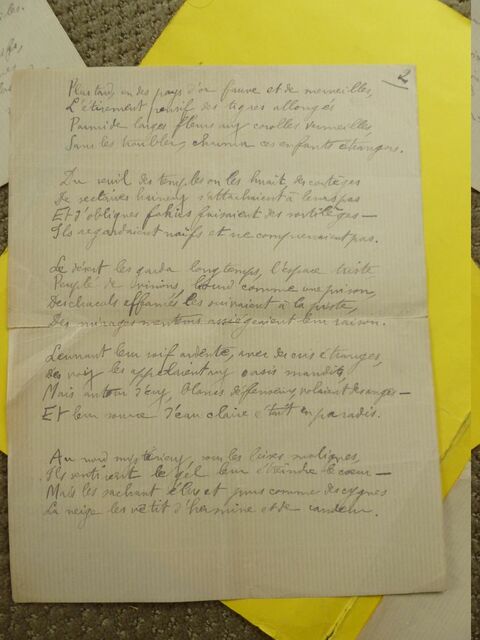 2
Plus tard, en des pays d'or fauve et de merveilles,
L'étirement pensif des tigres allongés
Parmi de larges fleurs aux corolles vermeilles,
Sans les troubler, charma ces enfants étrangers.
Du seuil des temples où les huait, des cortèges
De sectaires haineux s'attachaient à leurs pas
Et d'obliques fakirs faisaient des sortilèges —
Ils regardaient naïfs et ne comprenaient pas.
Le désert les garda longtemps, l'espace triste
Peuplé de visions, lourd comme une prison,
Des chacals effamés les suivaient à la piste,
Des mirages menteurs assiégeaient leur raison.
Leurrant leur soif ardente, avec des cris étranges,
Des voix les appelaient aux oasis maudits,
Mais autour d'eux, blancs défenseurs, volaient des anges —
Et leur source d'eau claire était en paradis.
Au nord mystérieux, sous les bises malignes,
Ils sentirent le gel leur étreindre le cœur —
Mais les sachant élus et purs comme des cygnes
La neige les vêtit d'hermine et de candeur.